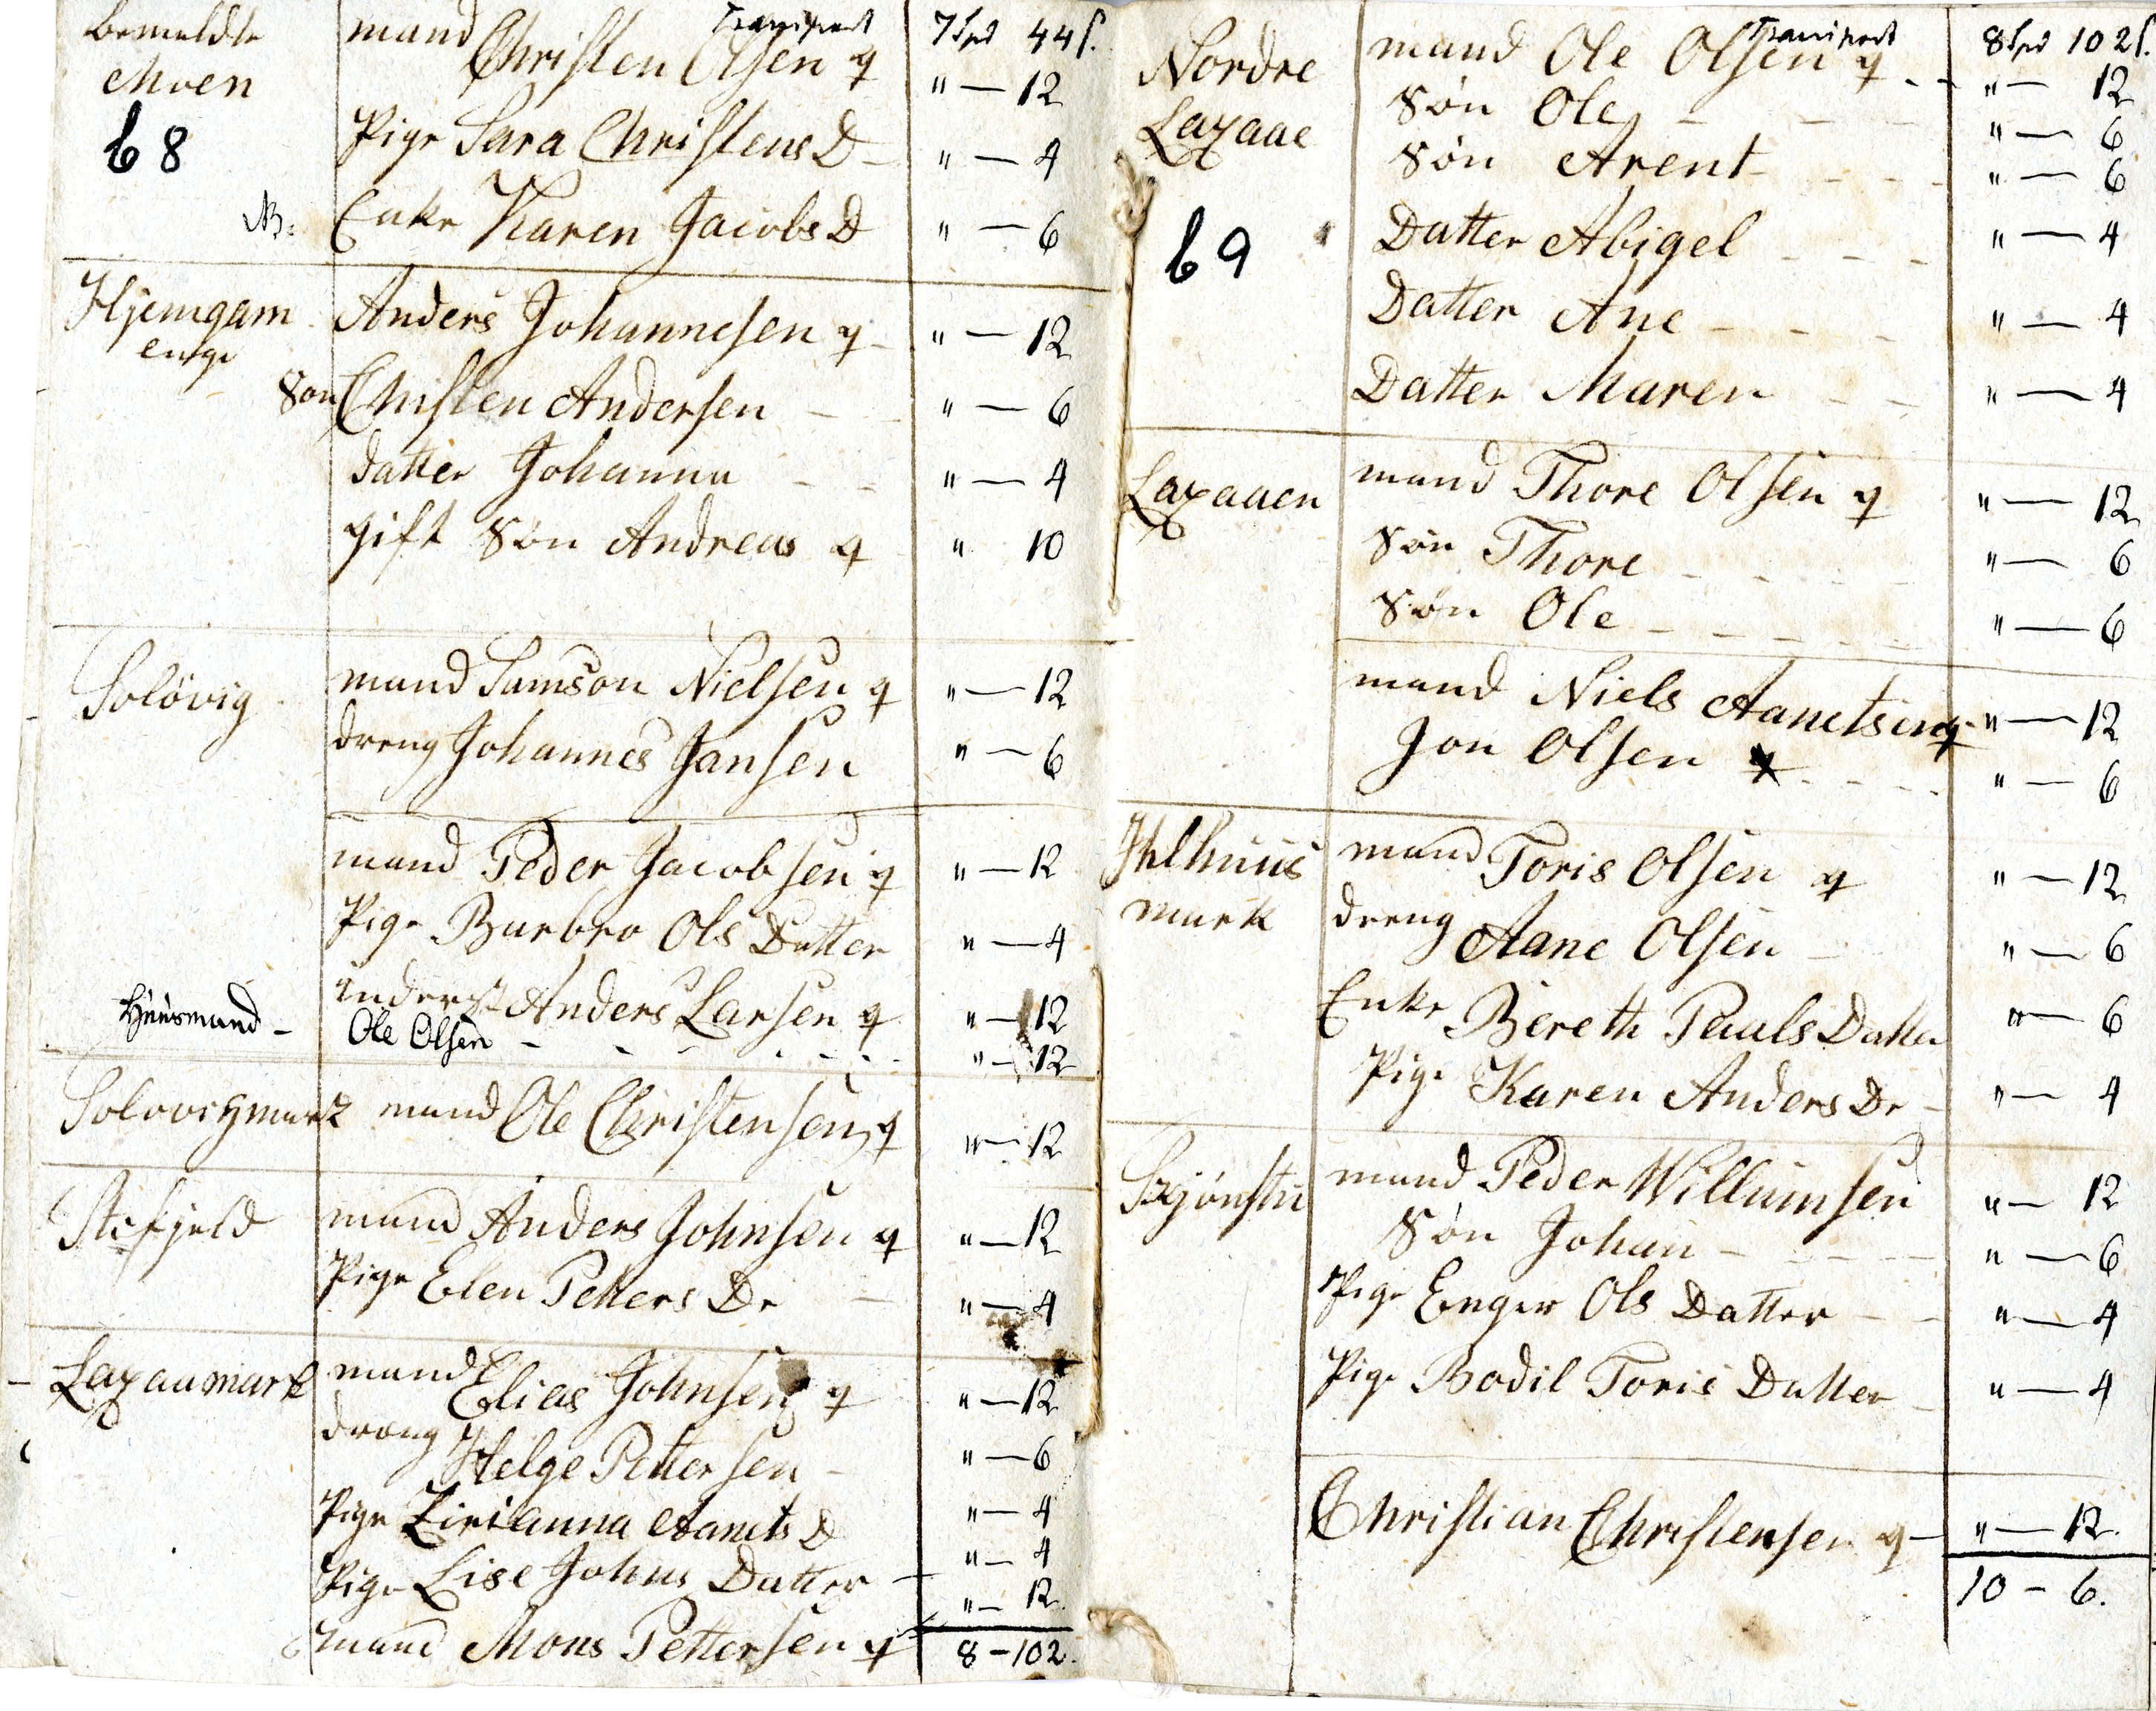 Transport 7 Spd 44 s.
bemeldte mand Christen Olsen q " — 12
Moen Pige Sara Christens D " — 4
68
NB. Enke Karen Jacobs D " — 6
Hjemgam Anders Johannesen q " — 12
enge
Søn Christen Andersen " — 6
datter Johanna " — 4
gift Søn Andreas q " 10
Soløvig mand Samson Nielsen q " — 12
dreng Johannes Jansen " — 6
mand Peder Jacobsen q " — 12
Pige Barbro Ols Datter " — 4
inderst Anders Larsen q " — 12
Huusmand - Ole Olsen " — 12
Solovigmark mand Ole Christensen q " — 12
Stefjeld mand Anders Johnsen q " — 12
Pige Elen Petters Dr " — 4
Laxaamark mand Elias Johnsen q " — 12
dreng Helge Pettersen " — 6
Pige Zirianna Aanets D " — 4
Pige Lise Johns Datter " — 4
mand Mons Pettersen q " — 12
8 - 102.
Transport 8 Spd 102 s.
Nordre mand Ole Olsen q " — 12
Laxaae Søn Ole " — 6
Søn Arent " — 6
69 Datter Abigel " — 4
Datter Ane " — 4
Datter Maren " — 4
Laxaaen mand Thore Olsen q " — 12
Søn Thore " — 6
Søn Ole " — 6
mand Niels Aanetsen q " — 12
Jon Olsen " — 6
Ihlhuus mand Toris Olsen q " — 12
mark dreng Aane Olsen " — 6
Enke Bereth Pauls Datter " — 6
Pige Karen Anders Dr " — 4
Skjønstu mand Peder Willumsen " — 12
Søn Johan " — 6
Pige Enger Ols Datter " — 4
Pige Bodil Toris Datter " — 4
Christian Christensen q " — 12.
10 - 6.